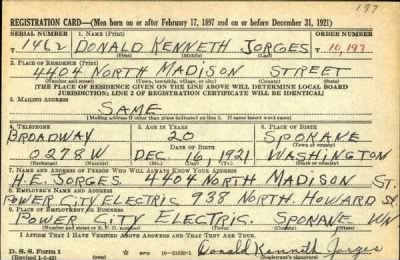 197
REGISTRATION CARD—(Men born on or after February 17, 1897 and on or before December 31, 1921)
SERIAL NUMBER 1. NAME (Print) ORDER NUMBER
1462 DONALD KENNETH JORGES 10,197
(First) (Middle) (Last)
2. PLACE OF RESIDENCE (Print)
4404 NORTH MADISON STREET
(Number and street) (Town, township, village, or city) (County) (State)
[THE PLACE OF RESIDENCE GIVEN ON THE LINE ABOVE WILL DETERMINE LOCAL BOARD
JURISDICTION; LINE 2 OF REGISTRATION CERTIFICATE WILL BE IDENTICAL]
3. MAILING ADDRESS
SAME
[Mailing address if other than place indicated on line 2. If same insert word same]
4. TELEPHONE 5. AGE IN YEARS 6. PLACE OF BIRTH
BROADWAY 20 SPOKANE
DATE OF BIRTH (Town or county)
0278W DEC. 16, 1921 WASHINGTON
(Exchange) (Number) (Mo.) (Day) (Yr.) (State or country)
7. NAME AND ADDRESS OF PERSON WHO WILL ALWAYS KNOW YOUR ADDRESS
H.E. JORGES 4404 NORTH MADISON ST.
8. EMPLOYER'S NAME AND ADDRESS
POWER CITY ELECTRIC 938 NORTH. HOWARD ST.
9. PLACE OF EMPLOYMENT OR BUSINESS
POWER CITY ELECTRIC. SPOKANE WN
(Number and street or R. F. D. number) (Town) (County) (State)
I AFFIRM THAT I HAVE VERIFIED ABOVE ANSWERS AND THAT THEY ARE TRUE.
D. S. S. Form 1
(Revised 1-1-42) GPO 16—21630-1 Donald Kenneth Jorges